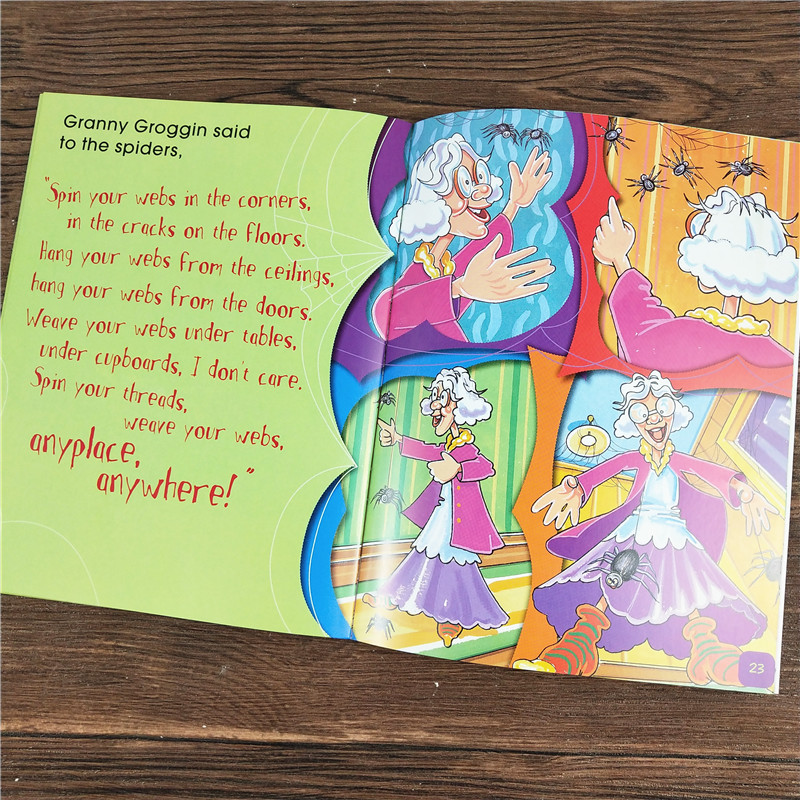 Granny Groggin said
to the spiders,
"Spin your webs in the corners,
in the cracks on the floors.
Hang your webs from the ceilings,
hang your webs from the doors.
Weave your webs under tables,
under cupboards, I don't care.
Spin your threads,
weave your webs,
anyplace,
anywhere!"
23